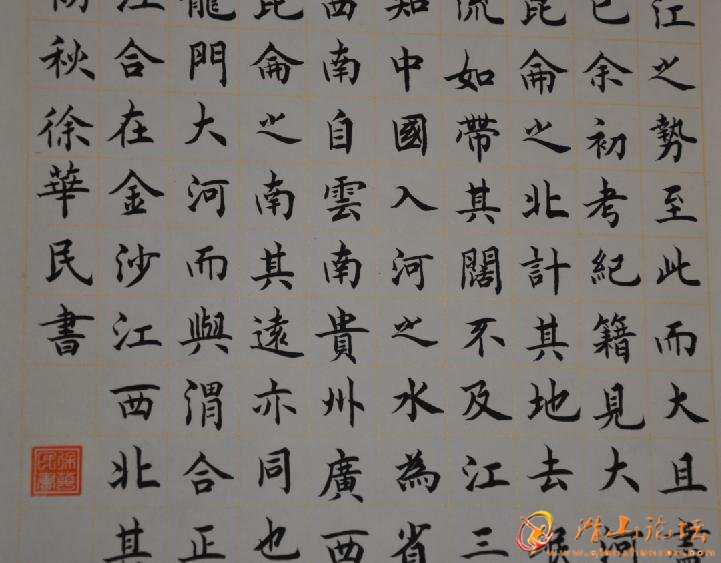 江之勢至此而大且盡
已余初考紀籍見大河
昆侖之北計其地去岷
流如帶其闊不及江三
知中國入河之水為省
西南自雲南貴州廣西
昆侖之南其遠亦同也
龍門大河而與渭合正
江合在金沙江西北其
秋徐華民書
潜山论坛